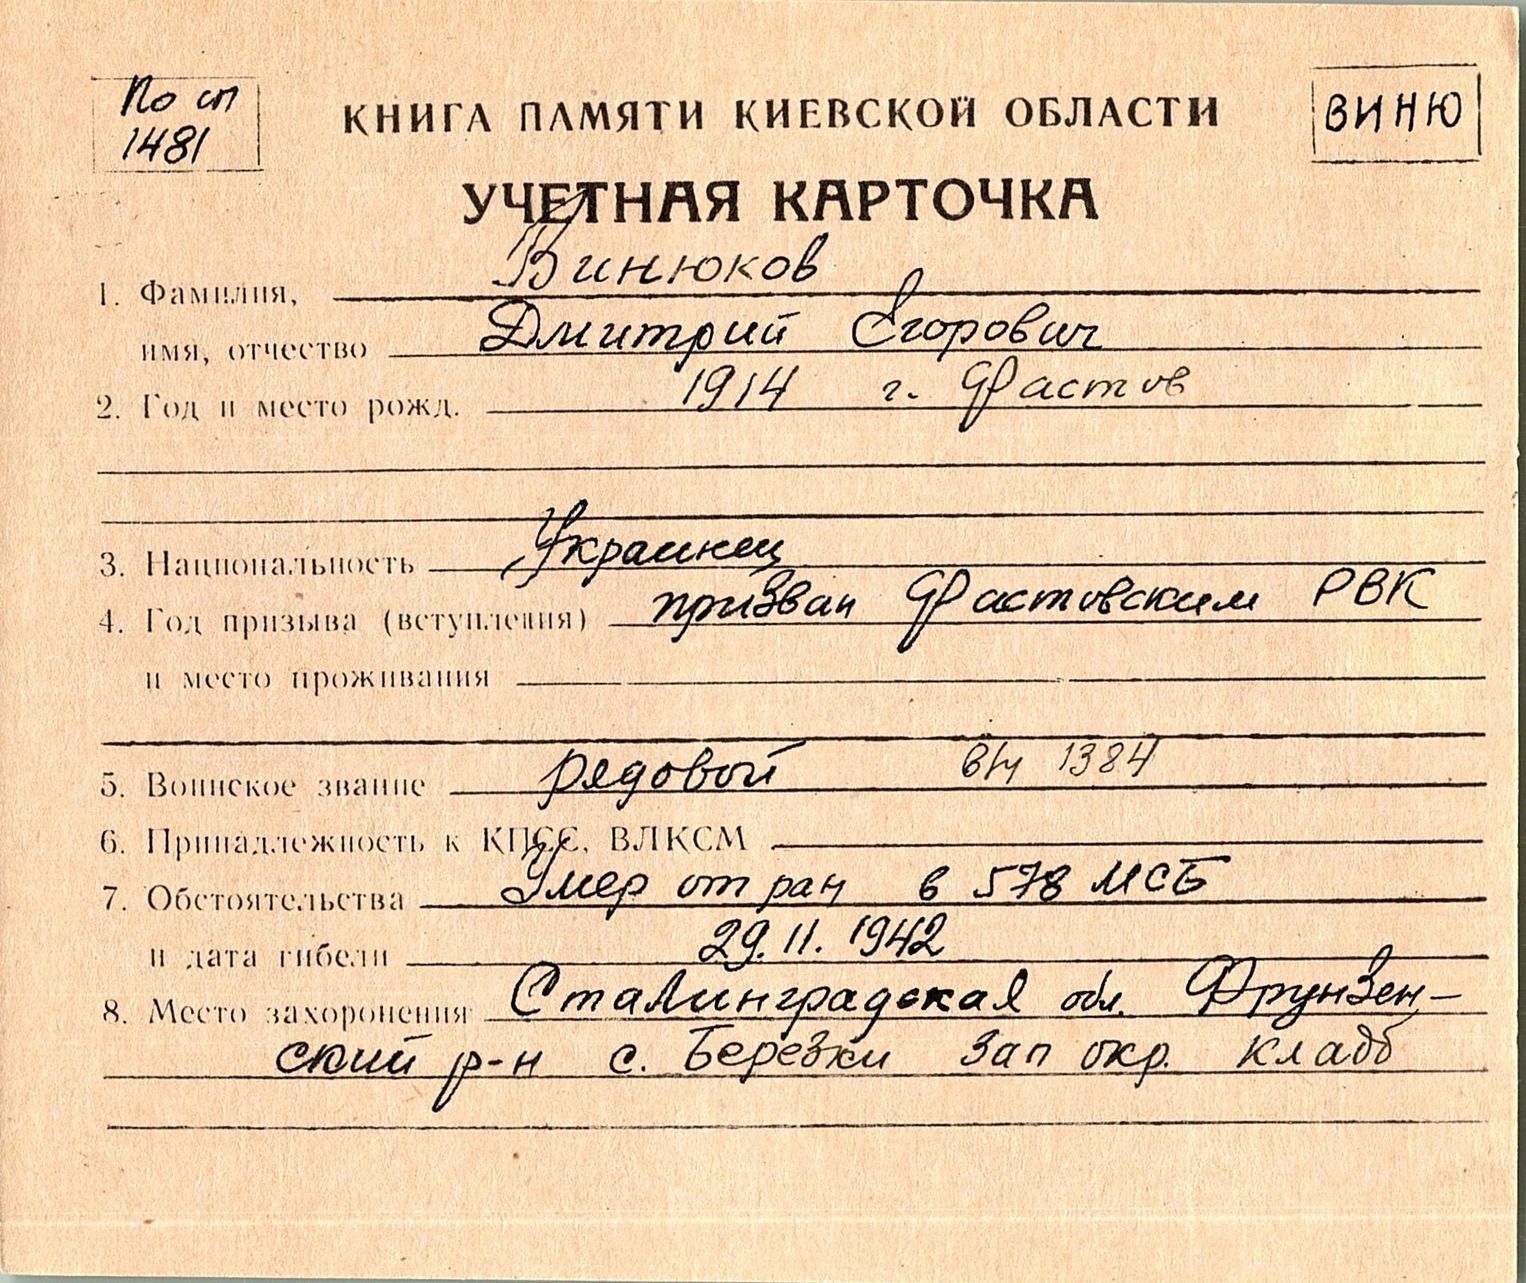 По сп
1481
КНИГА ПАМЯТИ КИЕВСКОЙ ОБЛАСТИ
ВИНЮ
УЧЕТНАЯ КАРТОЧКА
1. Фамилия, Винюков
имя, отчество Дмитрий Егорович
2. Год и место рожд. 1914 г. Фастов
3. Национальность Украинец
4. Год призыва (вступления) призван Фастовским РВК
и место проживания
5. Воинское звание рядовой в/ч 1384
6. Принадлежность к КПСС, ВЛКСМ
7. Обстоятельства Умер от ран в 578 МСБ
и дата гибели 29.11.1942
8. Место захоронения Сталинградская обл. Фрунзен-
ский р-н с. Березки зап окр. кладб